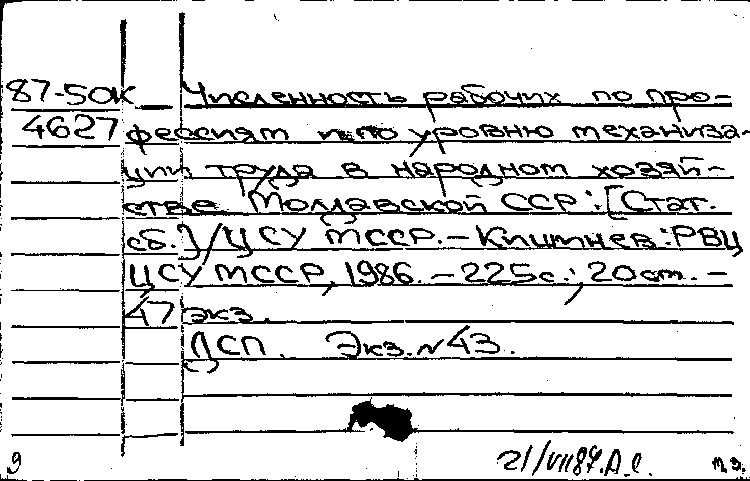 87-50к Численность рабочих по про-
4627 фессиям и по уровню механиза-
ции труда в народном хозяй-
стве Молдавской ССР: [Стат.
сб.]/ЦСУ МССР. - Кишинев: РВЦ
ЦСУ МССР, 1986. - 225с.; 20 см. -
47 экз.
ДСП. Экз. N 43.
9 21/VII 87. А.С. м.э.